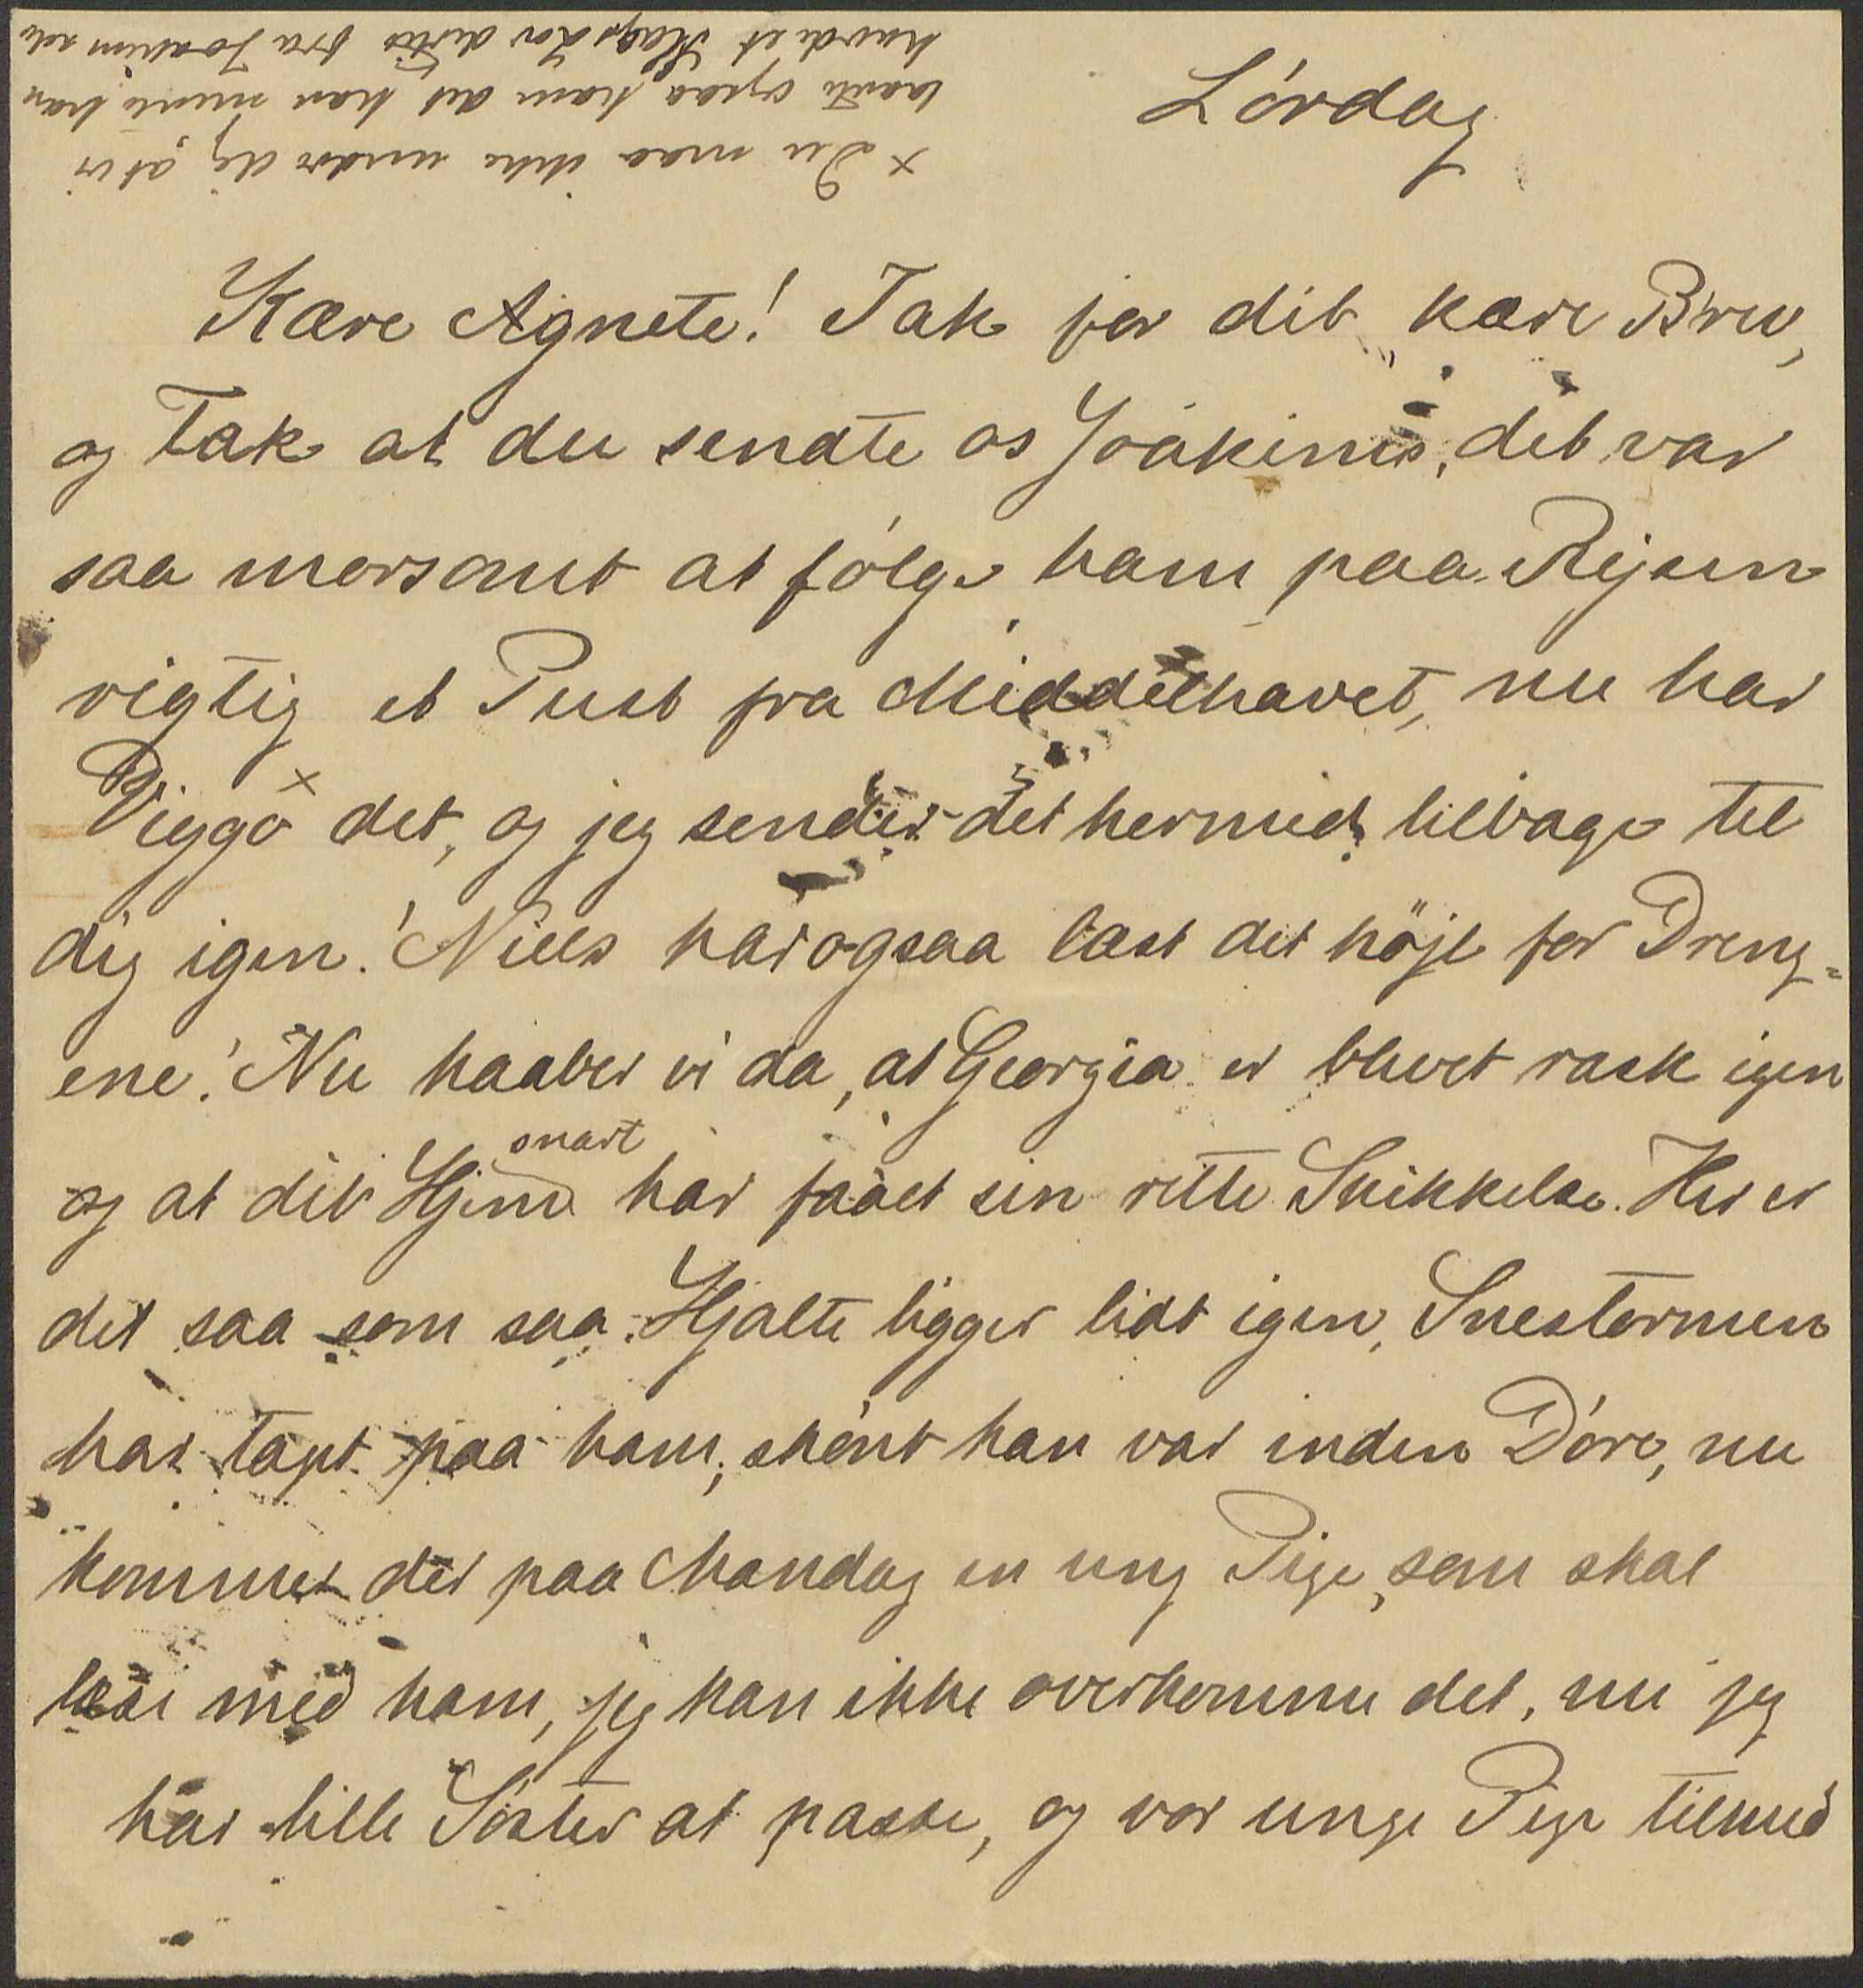 Lørdag
Kære Agnete! Tak for dit kære Brev,
og Tak at du sendte os Joakims, det var
saa morsomt at følge ham paa Rejsen
rigtig et Pust fra Middelhavet, nu har
Viggo x det, og jeg sender det hermed tilbage til
dig igen! Niels har ogsaa læst det højt for Dreng=
ene! Nu haaber vi da, at Georgia er blevet rask igen
og at dit Hjem snart har faaet sin rette Skikkelse. Her er
det saa som saa. Hjalte ligger lidt igen, Snestormen
har taget paa ham, skønt han var inden Døre, nu
kommer der paa Mandag en ung Pige, som skal
læse med ham, jeg kan ikke overkomme det, nu jeg
har lille Søster at passe, og vor unge Pige tilmed
x Du maa ikke undre dig, at vi
ham at han mente han
havde et Slags fra Joakim